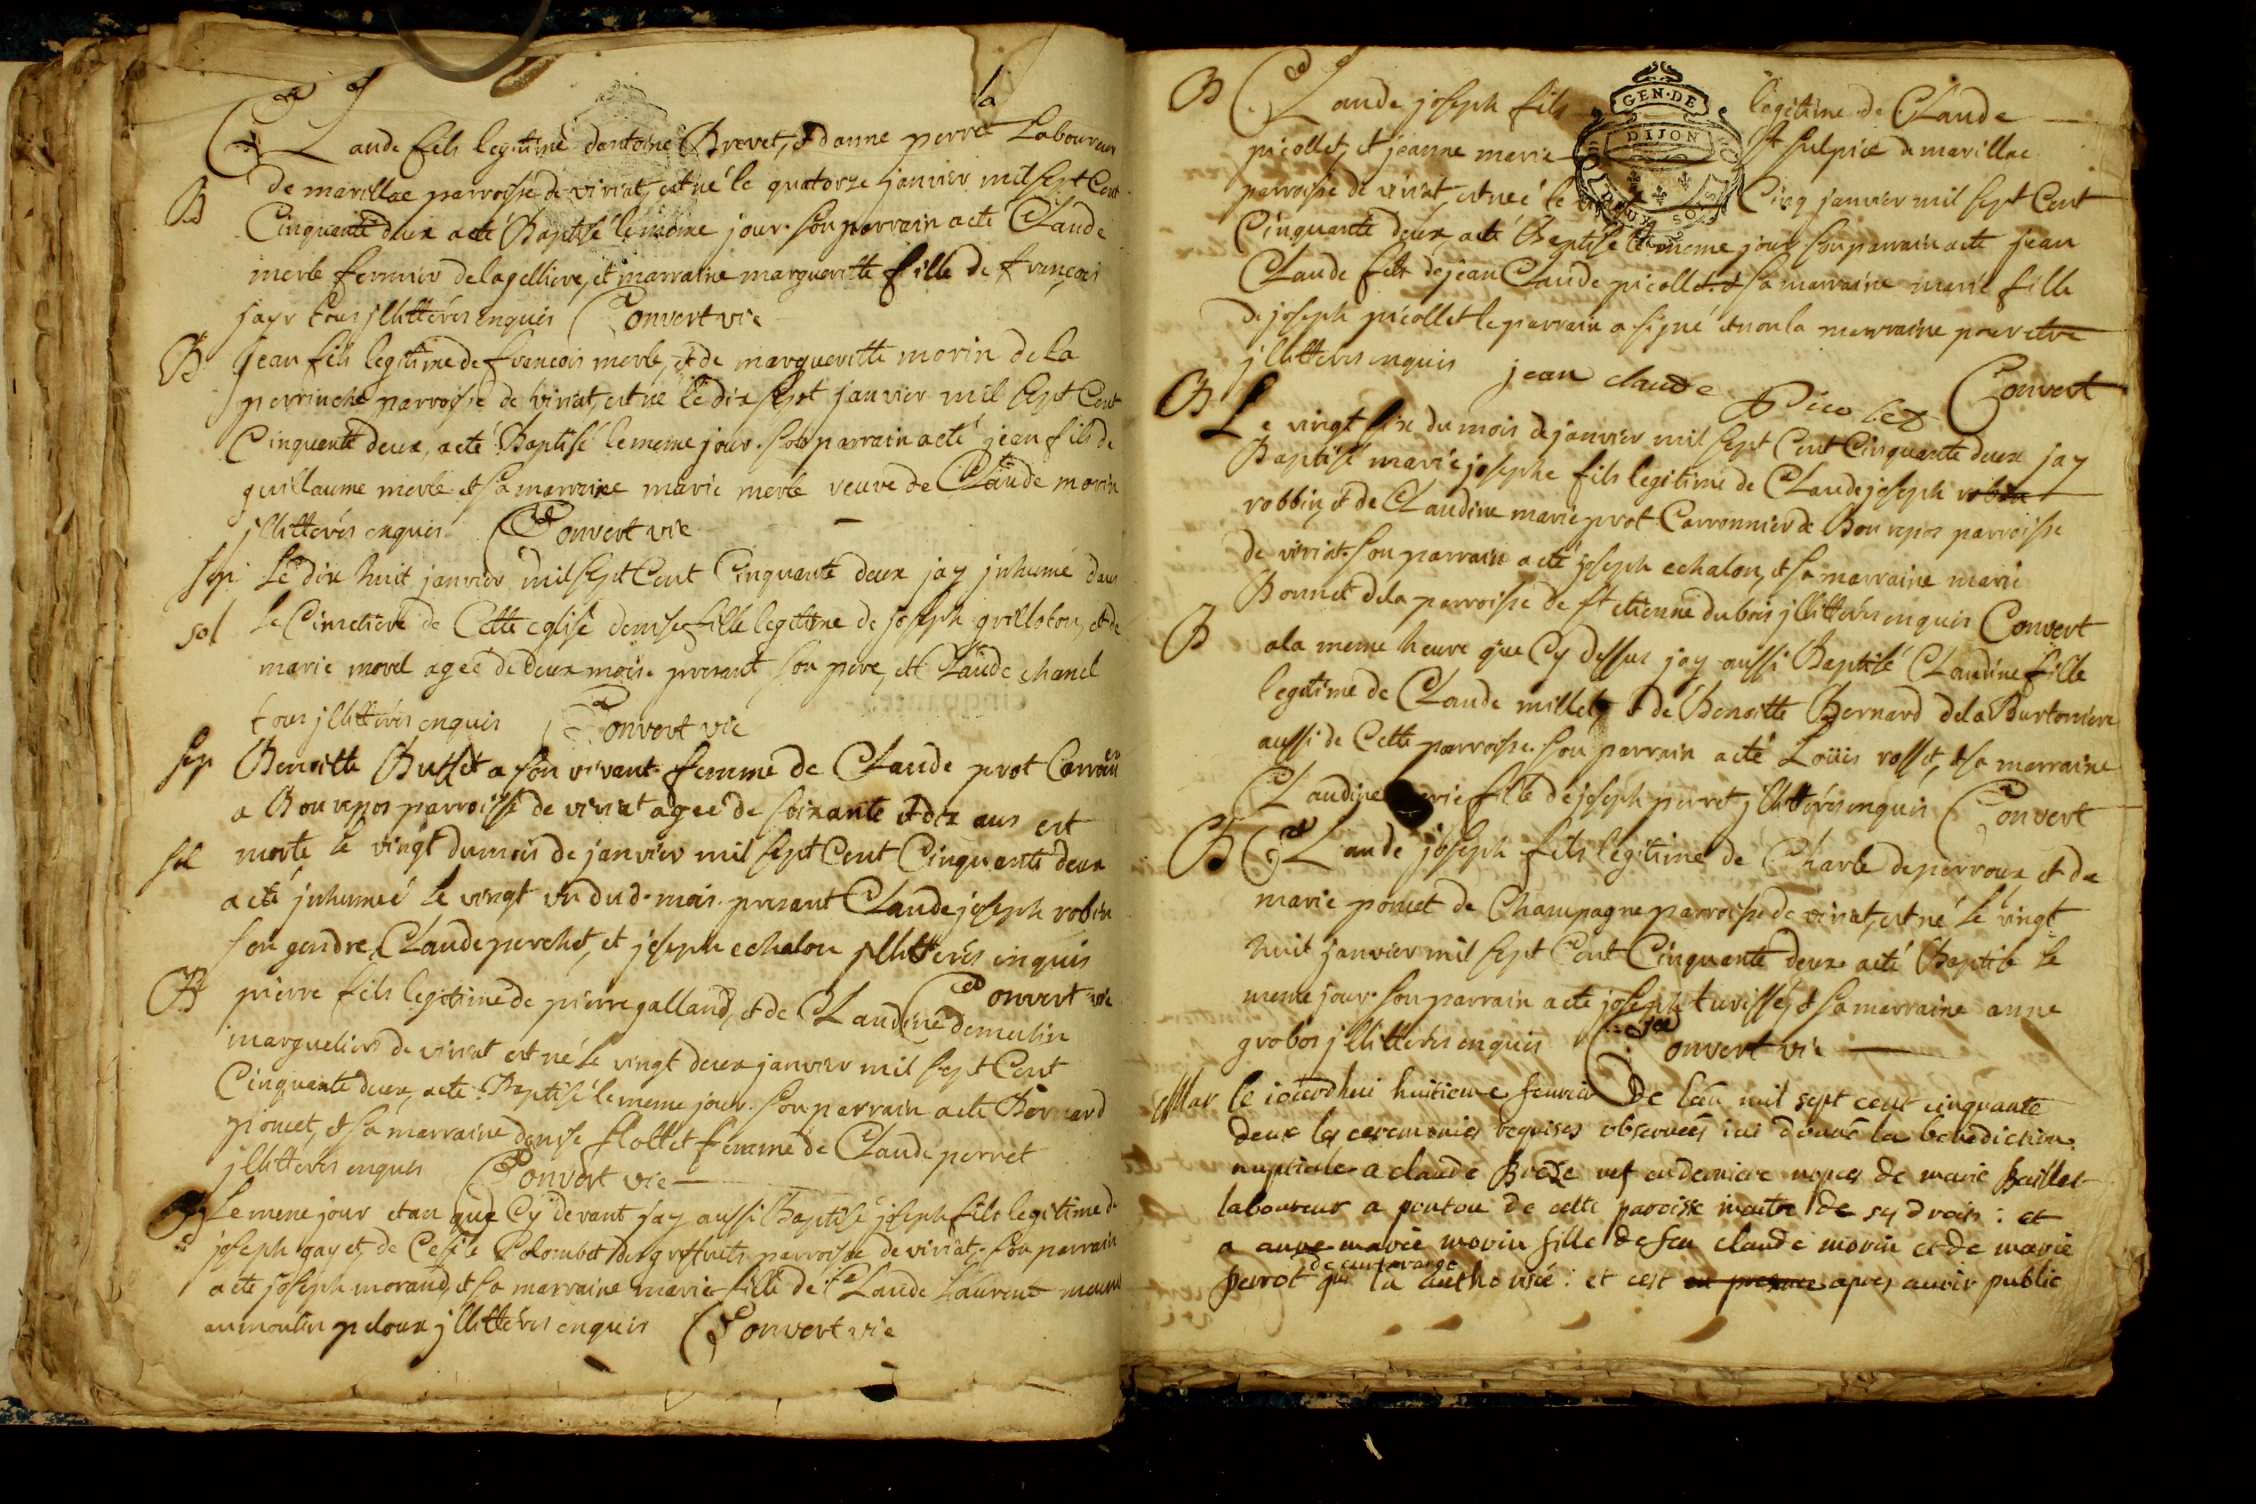 la
Claude fils legitime dantoine Brevet, & danne perret Laboureur
B
de marillac parroisse de viriat, est né le quatorze janvier mil sept Cent
Cinquante deux a eté Baptisé le même jour. son parrain a eté Claude
merle fermier de la gelliere, et marraine margueritte fille de françois
tous jllitterés enquis Convert vic
B Jean fils legitime de françois merle, & de margueritte morin de la
perrinche parroisse de viriat, est né le dix sept janvier mil sept Cent
Cinquante deux, a eté Baptisé le meme jour. son parrain a eté jean fils de
guillaume merle & sa marraine marie merle veuve de Claude morin
jllitterés enquis. Convert vic
sep. Le dix huit janvier mil sept Cent Cinquante deux jay jnhumé dans
sol le Cimetiere de Cette eglise denise fille legitime de joseph grilloton, et de
marie morel agée de deux mois. presant son pere, & Claude chanel
tous jllitterés enquis Convert vic
sep Benoitte Buffet a son vivant femme de Claude prot Carron
a Bon repos parroisse de viriat agée de soixante & dix ans est
sol morte le vingt du mois de janvier mil sept Cent Cinquante deux
a eté jnhumée le vingt un dud. mois. presant Claude joseph robin
son gendre, Claude perchet, et joseph echalon jllitterés enquis
Convert vic
B pierre fils legitime de pierre galland, & de Claudine demulin
marguelier de viriat est né le vingt deux janvier mil sept Cent
Cinquante deux, a eté Baptisé le meme jour. son parrain a eté Bernard
poncet, & sa marraine denise flottet femme de Claude perret
jllitterés enquis Convert vic
B Le meme jour et an que Cy devant jay aussi Baptisé joseph fils legitime de
joseph gay et de Cesile Colombet des greffets parroisse de viriat. son parrain
a eté joseph morand, et sa marraine marie fille de Claude Laurent
au moulin peloux jllitterés enquis Convert vic
B Claude joseph fils legitime de Claude
GEN. DE DIJON DEUX SOLS
picollet, et jeanne marie St sulpice de marillac
parroisse de viriat, est né le Cinq janvier mil sept Cent
Cinquante deux, a eté Baptisé le meme jour son parrain a eté jean
Claude fils de jean Claude picollet & sa marraine marie fille
de joseph picollet le parrain a signé & non la marraine pour etre
jllitterés enquis jean claude Picolet Convert
B Le vingt six du mois de janvier mil sept Cent Cinquante deux jay
Baptisé marie josephe fils legitime de Claude joseph robin
robbin, & de Claudine marie prot Carronnier de Bon repos parroisse
de viriat. son parrain a eté joseph echalon, & sa marraine marie
Bonnet de la parroisse de st etienne du bois jllitterés enquis Convert
B a la meme heure que Cy dessus jay aussi Baptisé Claudine fille
legitime de Claude millet, & de Benoitte Bernard de la Burtoniere
aussi de Cette parroisse. son parrain a eté Loüis rosset, & sa marraine
Claudine marie fille de joseph perret jllitterés enquis Convert
B Claude joseph fils legitime de Charle deperroux et de
marie poncet de Champagne parroisse de viriat, est né le vingt
huit janvier mil sept Cent Cinquante deux a eté Baptisé le
meme jour. son parrain a eté joseph tuvissey & sa marraine anne
grobos jllitterés enquis Convert vic
Mar le iourdhui huitieme feuvrier De lan mil sept cent cinquante
deux les ceremonies requises observées iai donné la benediction
nuptiale a claude Breze vef en derniere nopces de marie Baillet
laboureur a pontou de cette paroisse maitre de sy drois : et
a anne marie morin fille de feu claude morin et de marie
perrot qui la authorisé : et cest en presence apres avoir publie